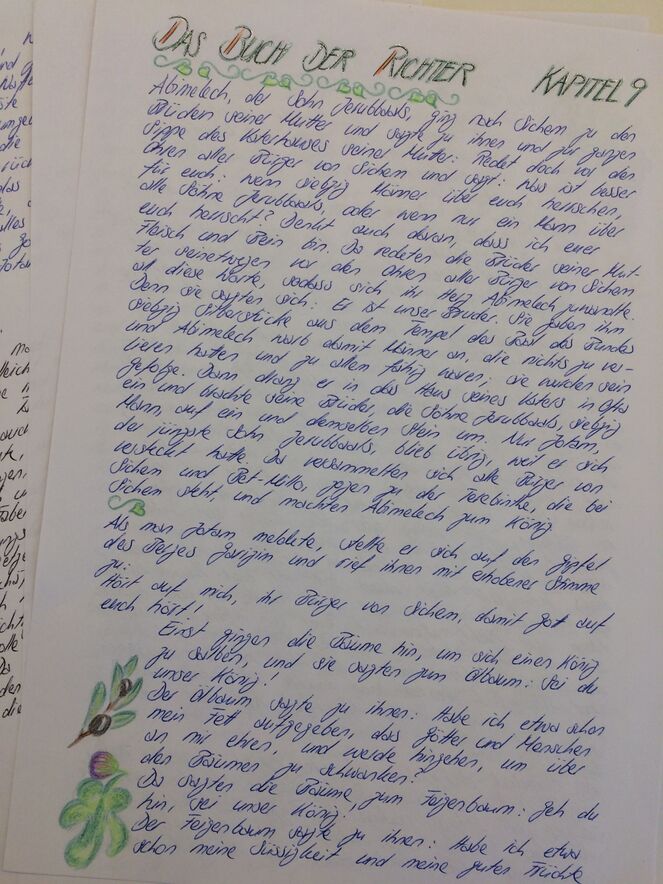 DAS BUCH DER RICHTER KAPITEL 9
Abimelech, der Sohn Jerubbaals, ging nach Sichem zu den
Brüdern seiner Mutter und sagte zu ihnen und zur ganzen
Sippe des Vaterhauses seiner Mutter: Redet doch vor den
Ohren aller Bürger von Sichem und sagt: Was ist besser
für euch: wenn siebzig Männer über euch herrschen,
alle Söhne Jerubbaals, oder wenn nur ein Mann über
euch herrscht? Denkt auch daran, dass ich euer
Fleisch und Bein bin. Da redeten die Brüder seiner Mut-
ter seinetwegen vor den Ohren aller Bürger von Sichem
all diese Worte, sodass sich ihr Herz Abimelech zuwandte.
Denn sie sagten sich: Er ist unser Bruder. Sie gaben ihm
siebzig Silberstücke aus dem Tempel des Baal des Bundes
und Abimelech warb damit Männer an, die nichts zu ver-
lieren hatten und zu allem fähig waren; sie wurden sein
Gefolge. Dann drang er in das Haus seines Vaters in Ofra
ein und brachte seine Brüder, die Söhne Jerubbaals, siebzig
Mann, auf ein und demselben Stein um. Nur Jotam,
der jüngste Sohn Jerubbaals, blieb übrig, weil er sich
versteckt hatte. Da versammelten sich alle Bürger von
Sichem und Bet-Millo, zogen zu der Terebinthe, die bei
Sichem steht und machten Abimelech zum König
Als man Jotam meldete, stellte er sich auf den Gipfel
des Berges Garizim und rief ihnen mit erhobener Stimme
zu:
Hört auf mich, ihr Bürger von Sichem, damit Gott auf
euch hört!
Einst gingen die Bäume hin, um sich einen König
zu salben, und sie sagten zum Ölbaum: Sei du
unser König!
Der Ölbaum sagte zu ihnen: Habe ich etwa schon
mein Fett aufgegeben, das Götter und Menschen
an mir ehren, und werde hingehen, um über
den Bäumen zu schwanken?
Da sagten die Bäume zum Feigenbaum: Geh du
hin, sei unser König!
Der Feigenbaum sagte zu ihnen: Habe ich etwa
schon meine Süssigkeit und meine guten Früchte